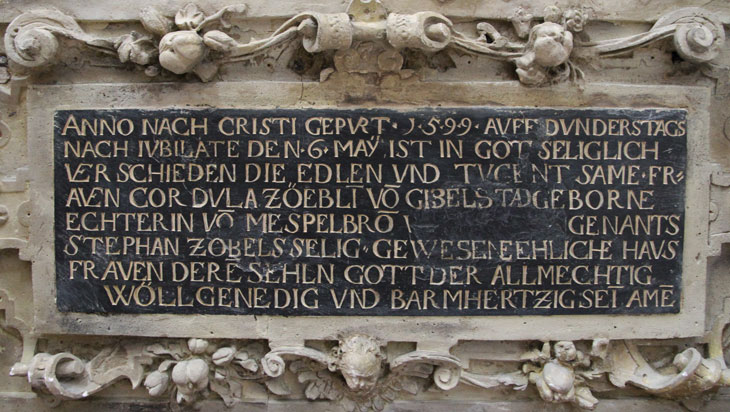 ANNO NACH CRISTI GEPVRT · 1·5·9·9 · AVFF DVNDERSTAGS
NACH IVBILATE DEN · 6 · MAӰ IST IN GOTT SELIGLICH
VERSCHIEDEN DIE EDLEN VND TVGENT SAME · FR
AVEN CORDVLA ZÖEBLĪ VŌ GIBELSTAD GEBORNE
ECHTERIN VŌ MESPELBRŌ GENANTS
STEPHAN ZOBELS SELIG · GEWESENE EHLICHE HAVS
FRAVEN DERE SEHLN GOTT DER ALLMECHTIG
WÖLL GENEDIG VND BARMHERTZIG SEĪ AMĒ